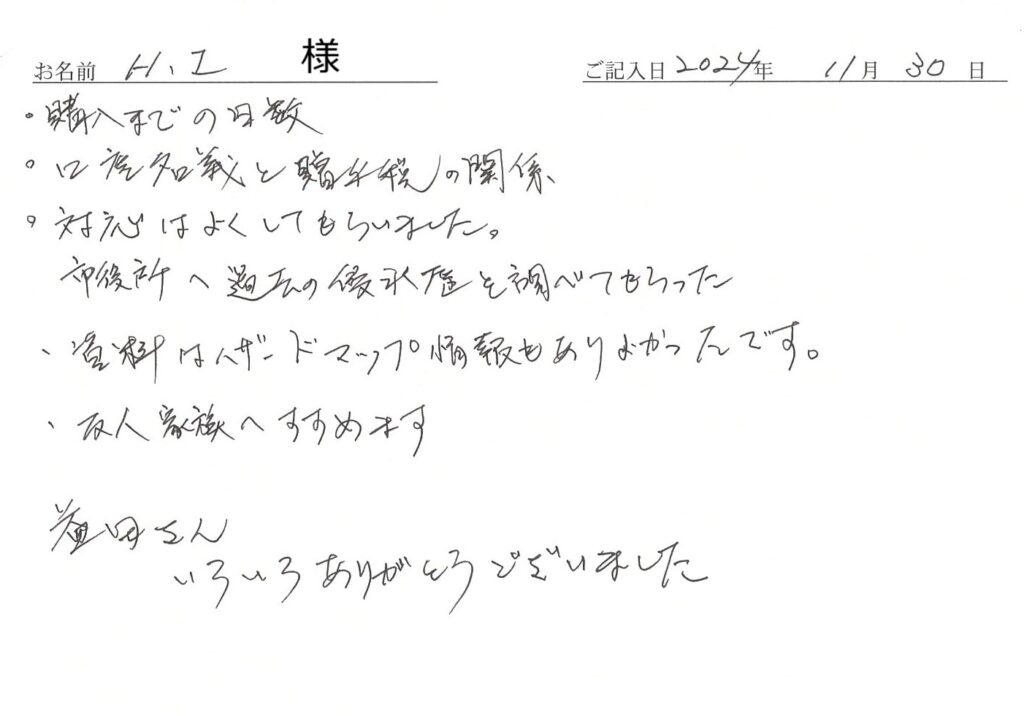 お名前 H.I 様 ご記入日 2024年 11月 30日
・購入までの日数
・口座名義と贈与税の関係
・対応はよくしてもらいました。
市役所へ過去の浸水歴を調べてもらった
、資料はハザードマップ情報もありよかったです。
、友人家族へすすめます
益田さん
いろいろありがとうございました